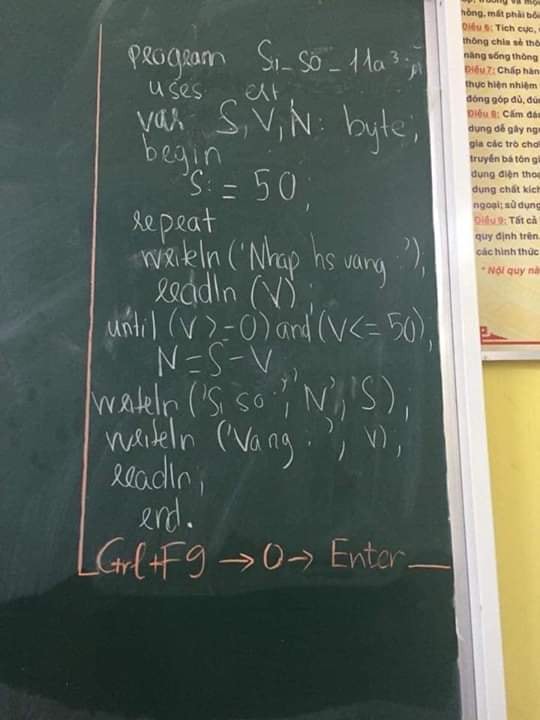 program Si_so_11a3;
uses crt
var S, V, N: byte;
begin
S:= 50;
repeat
writeln ('Nhap hs vang:');
readln (V);
until (V>=0) and (V<=50);
N=S-V
writeln ('Si so:', N,'/', S);
writeln ('Vang:', V);
readln;
end.
Ctrl+F9 → 0 → Enter
hỏng, mất phải bồi
Điều 6: Tích cực,
thông chia sẻ
năng sống thông
Điều 7: Chấp hàn
thực hiện nhiệm
đóng góp đủ, đún
Điều 8: Cấm
dụng dễ gây
gia các trò chơi
truyền bá tôn gi
dụng điện thoạ
dụng chất kích
ngoại; sử dụng
Điều 9: Tất cả
quy định trên.
các hình thức
* Nội quy nà